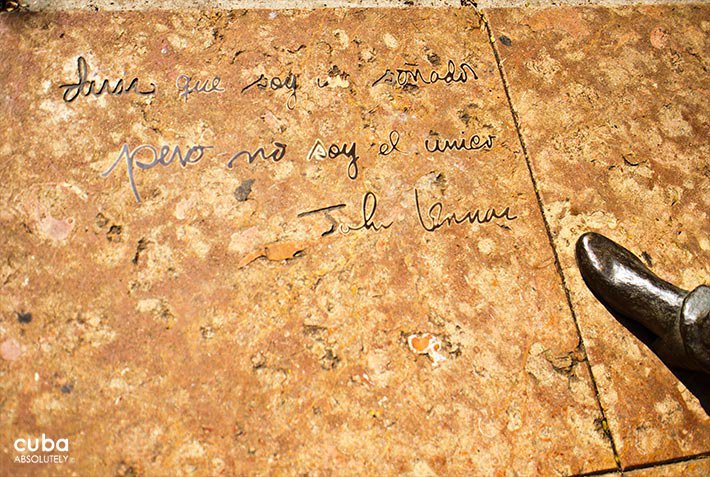 diras que soy un soñador
pero no soy el unico
John Lennon
cuba
ABSOLUTELY